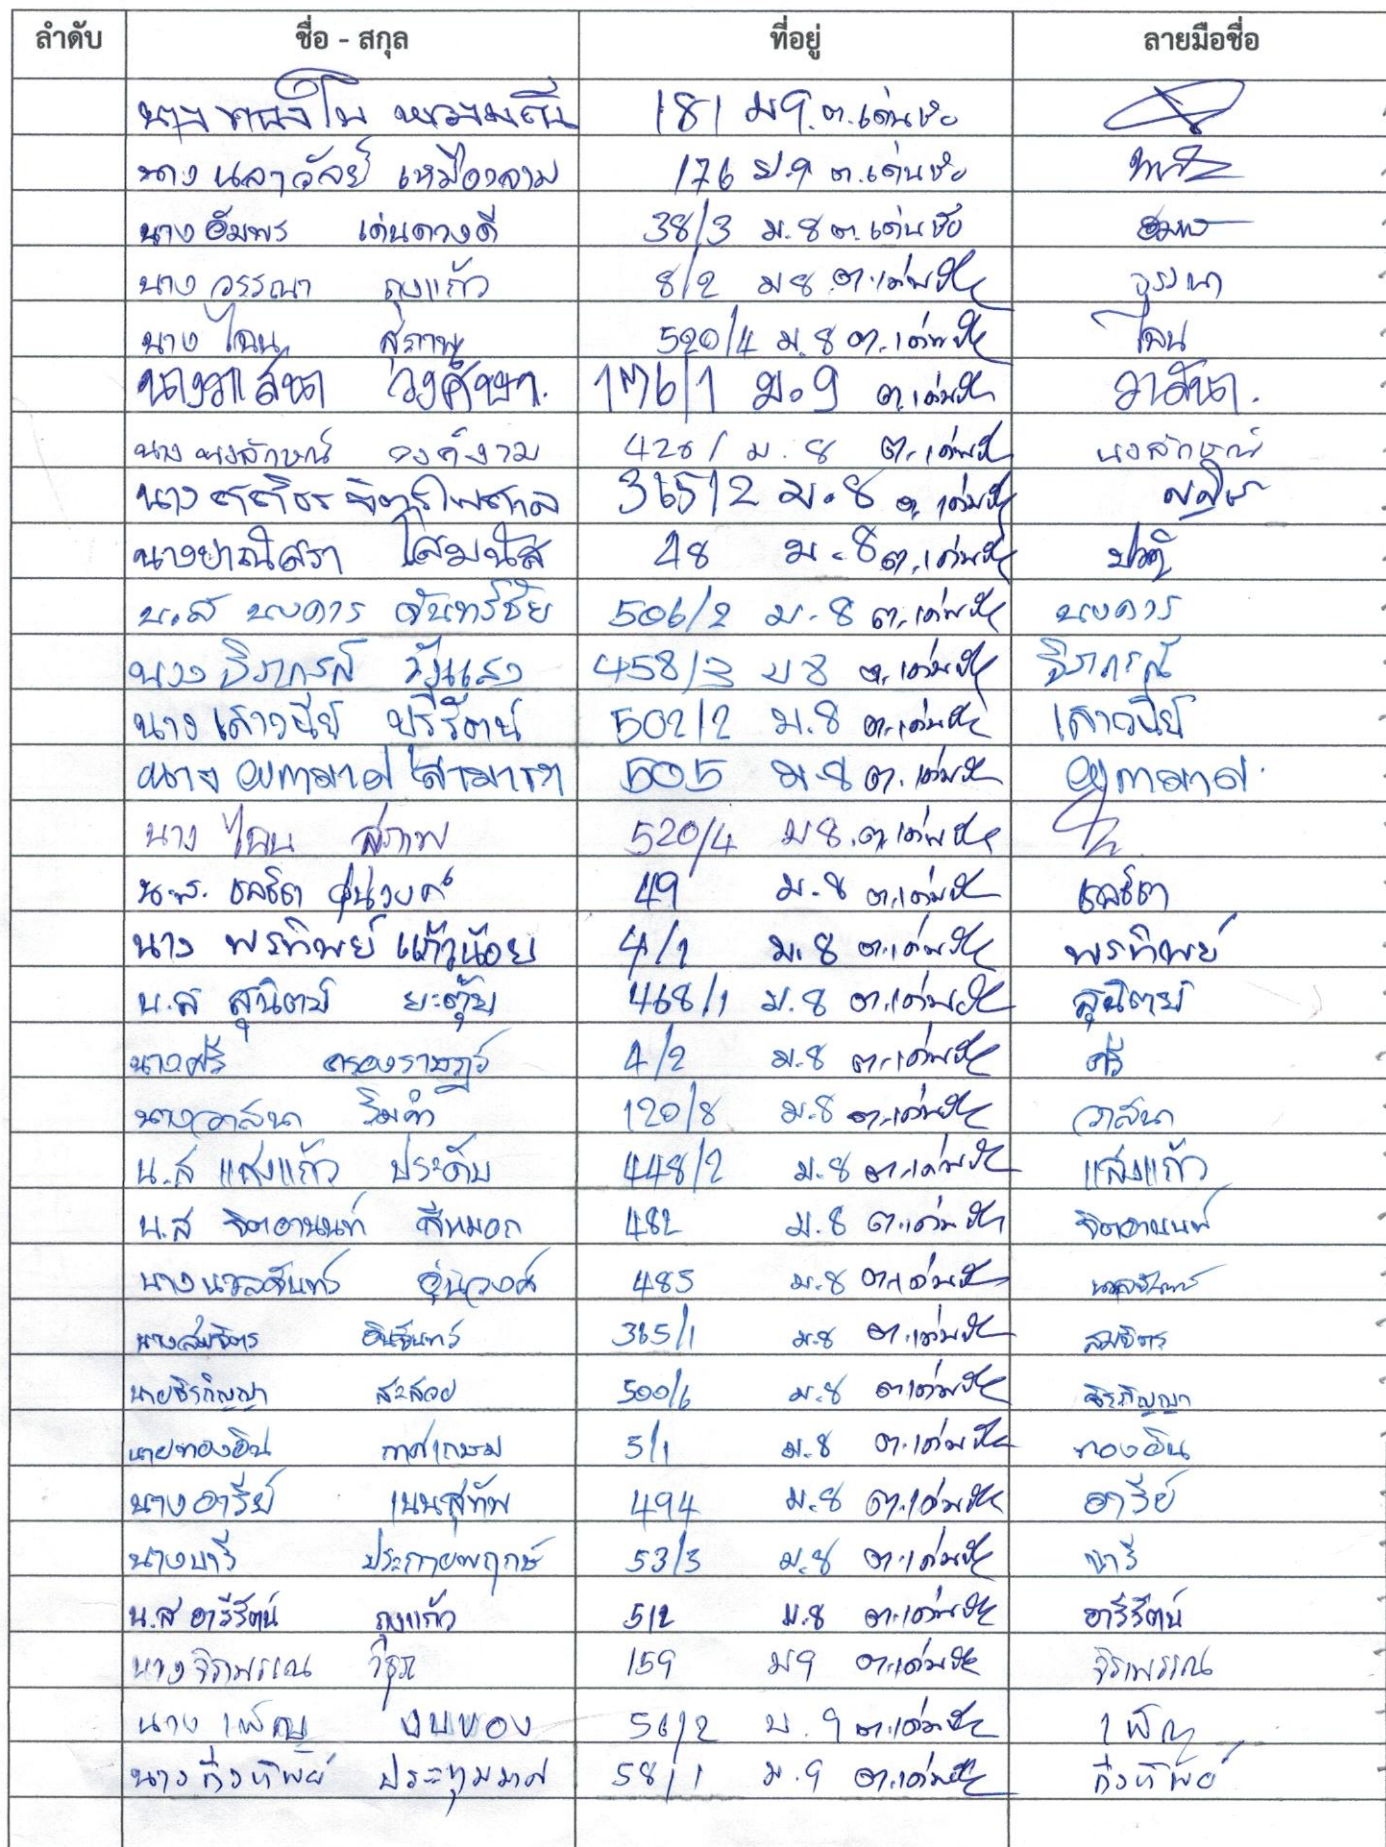 ลำดับ ชื่อ - สกุล ที่อยู่ ลายมือชื่อ
181 ม9. ต.เด่นชัย
นาง เหมืองลาม 176 ม.9 ต.เด่นชัย
นาง อัมพร เด่นดวงดี 38/3 ม.8 ต.เด่นชัย อัมพร
นาง วรรณา ถุงแก้ว 8/2 ม8 ต.เด่นชัย วรรณา
นาง ไฉน สุภาพ 520/4 ม.8 ต.เด่นชัย ไฉน
นางวาสนา 176/1 ม.9 ต.เด่นชัย วาสนา.
นาง นงลักษณ์ องค์งาม ม.8 ต.เด่นชัย นงลักษณ์
นาง ศศิธร จิตรไพศาล 365/2 ม.8 ต.เด่นชัย
นางปาณิสรา โสมนัส 48 ม.8 ต.เด่นชัย
น.ส นงคาร จันทร์ชัย 506/2 ม.8 ต.เด่นชัย นงคาร
นาง จิราภรณ์ 458/3 ม8 ต.เด่นชัย จิราภรณ์
นาง เสาวนีย์ ปรีรัตน์ 502/2 ม.8 ต.เด่นชัย เสาวนีย์
นาง 505 ม.8 ต.เด่นชัย
นาง ไฉน สุภาพ 520/4 ม8. ต.เด่นชัย
น.ส. ชลธิตา อุ่นวงค์ 49 ม.8 ต.เด่นชัย ชลธิตา
นาง พรทิพย์ แก้วน้อย 4/1 ม.8 ต.เด่นชัย พรทิพย์
น.ส สุนิตย์ ยะตุ้ย 468/1 ม.8 ต.เด่นชัย สุนิตย์
นางศรี ครองราษฎร์ 4/2 ม.8 ต.เด่นชัย ศรี
นางวาสนา ริมคำ 120/8 ม.8 ต.เด่นชัย วาสนา
น.ส แสงแก้ว ประดับ 448/2 ม.8 ต.เด่นชัย แสงแก้ว
น.ส จิตอานนท์ ศรีหมอก 482 ม.8 ต.เด่นชัย จิตอานนท์
นางนวลจันทร์ อุ่นวงค์ 485 ม.8 ต.เด่นชัย นวลจันทร์
นางสมจิตร อินจันทร์ 365/1 ม.8 ต.เด่นชัย สมจิตร
นายธิรภิญญา สะสวย 500/6 ม.8 ต.เด่นชัย ธิรภิญญา
นายทองอิน กาศเกษม 5/1 ม.8 ต.เด่นชัย ทองอิน
นางอารีย์ เนนสุทัพ 494 ม.8 ต.เด่นชัย อารีย์
นาง ประกายพฤกษ์ 53/3 ม.8 ต.เด่นชัย
น.ส อารีรัตน์ ถุงแก้ว 512 ม.8 ต.เด่นชัย อารีรัตน์
นาง จิราพรรณ 159 ม9 ต.เด่นชัย จิราพรรณ
นาง เพ็ญ 56/2 ม.9 ต.เด่นชัย เพ็ญ
นาง กิ่งทิพย์ ประทุมมาศ 58/1 ม.9 ต.เด่นชัย กิ่งทิพย์